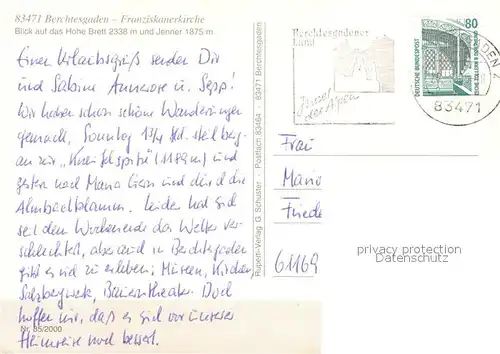 83471 Berchtesgaden – Franziskanerkirche
Blick auf das Hohe Brett 2338 m und Jenner 1875 m
Einen Urlaubsgruß senden Dir
und Sabine Annerose u. Sepp!
Wir haben schon schöne Wanderungen
gemacht, Sonntag 1 3/4 Std. steil berg-
an zur "Kneifelspitze" (1189m) und
gestern nach Maria Gern und durch die
Almbachklamm. Leider hat sich
seit dem Wochenende das Wetter ver-
schlechtert, aber auch in Berchtesgaden
gibt es viel zu erleben: Museen, Kirchen,
Salzbergwerk, Bauerntheater. Doch
hoffen wir, daß es sich vor unserer
Heimreise noch bessert.
Nr. 85/2000
Rupert-Verlag G. Schuster · Postfach 83464 · 83471 Berchtesgaden
Berchtesgadener
Land
der Alpen
80
DEUTSCHE BUNDESPOST
ZECHE ZOLLERN II DORTMUND
83471
Frau
Mario
Friede
61169
privacy protection
Datenschutz